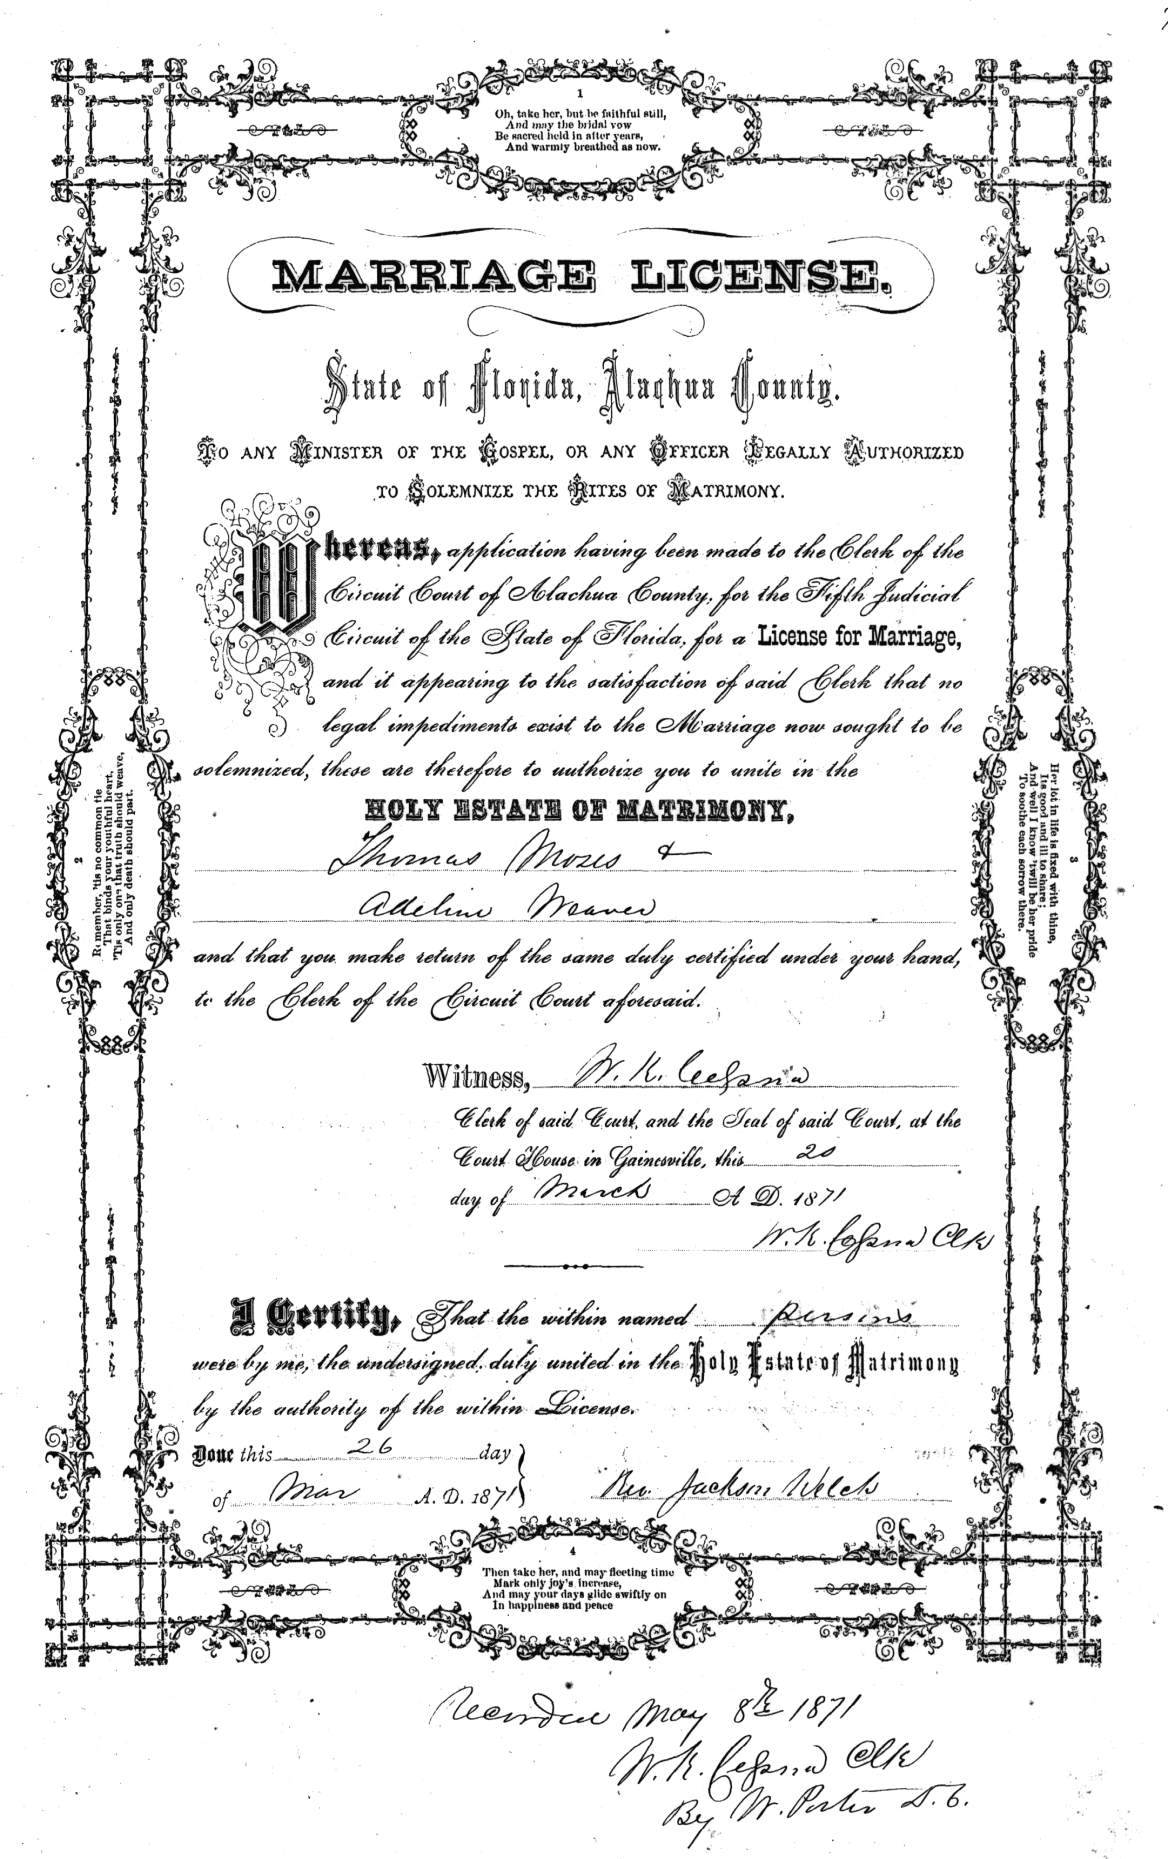 1
Oh, take her, but be faithful still,
And may the bridal vow
Be sacred held in after years,
And warmly breathed as now.
MARRIAGE LICENSE.
State of Florida, Alachua County.
TO ANY MINISTER OF THE GOSPEL, OR ANY OFFICER LEGALLY AUTHORIZED
TO SOLEMNIZE THE RITES OF MATRIMONY.
Whereas, application having been made to the Clerk of the
Circuit Court of Alachua County, for the Fifth Judicial
Circuit of the State of Florida, for a License for Marriage,
and it appearing to the satisfaction of said Clerk that no
legal impediments exist to the Marriage now sought to be
solemnized, these are therefore to authorize you to unite in the
HOLY ESTATE OF MATRIMONY,
Thomas Moses &
Adeline Weaver
and that you make return of the same duly certified under your hand,
to the Clerk of the Circuit Court aforesaid.
2
Remember, 'tis no common tie
That binds your youthful heart,
'Tis only one that truth should weave,
And only death should part.
3
Her lot in life is fixed with thine,
Its good and ill to share;
And well I know 'twill be her pride
To soothe each sorrow there.
Witness, W. K. Cessna
Clerk of said Court, and the Seal of said Court, at the
Court House in Gainesville, this 20
day of March A. D. 1871
W. K. Cessna Clk
I Certify, That the within named persons
were by me, the undersigned, duly united in the Holy Estate of Matrimony
by the authority of the within License.
Done this 26 day
of Mar A. D. 1871
Rev. Jackson Welch
4
Then take her, and may fleeting time
Mark only joy's increase,
And may your days glide swiftly on
In happiness and peace
Recorded May 8th 1871
W. K. Cessna Clk
By W. Porter D. C.